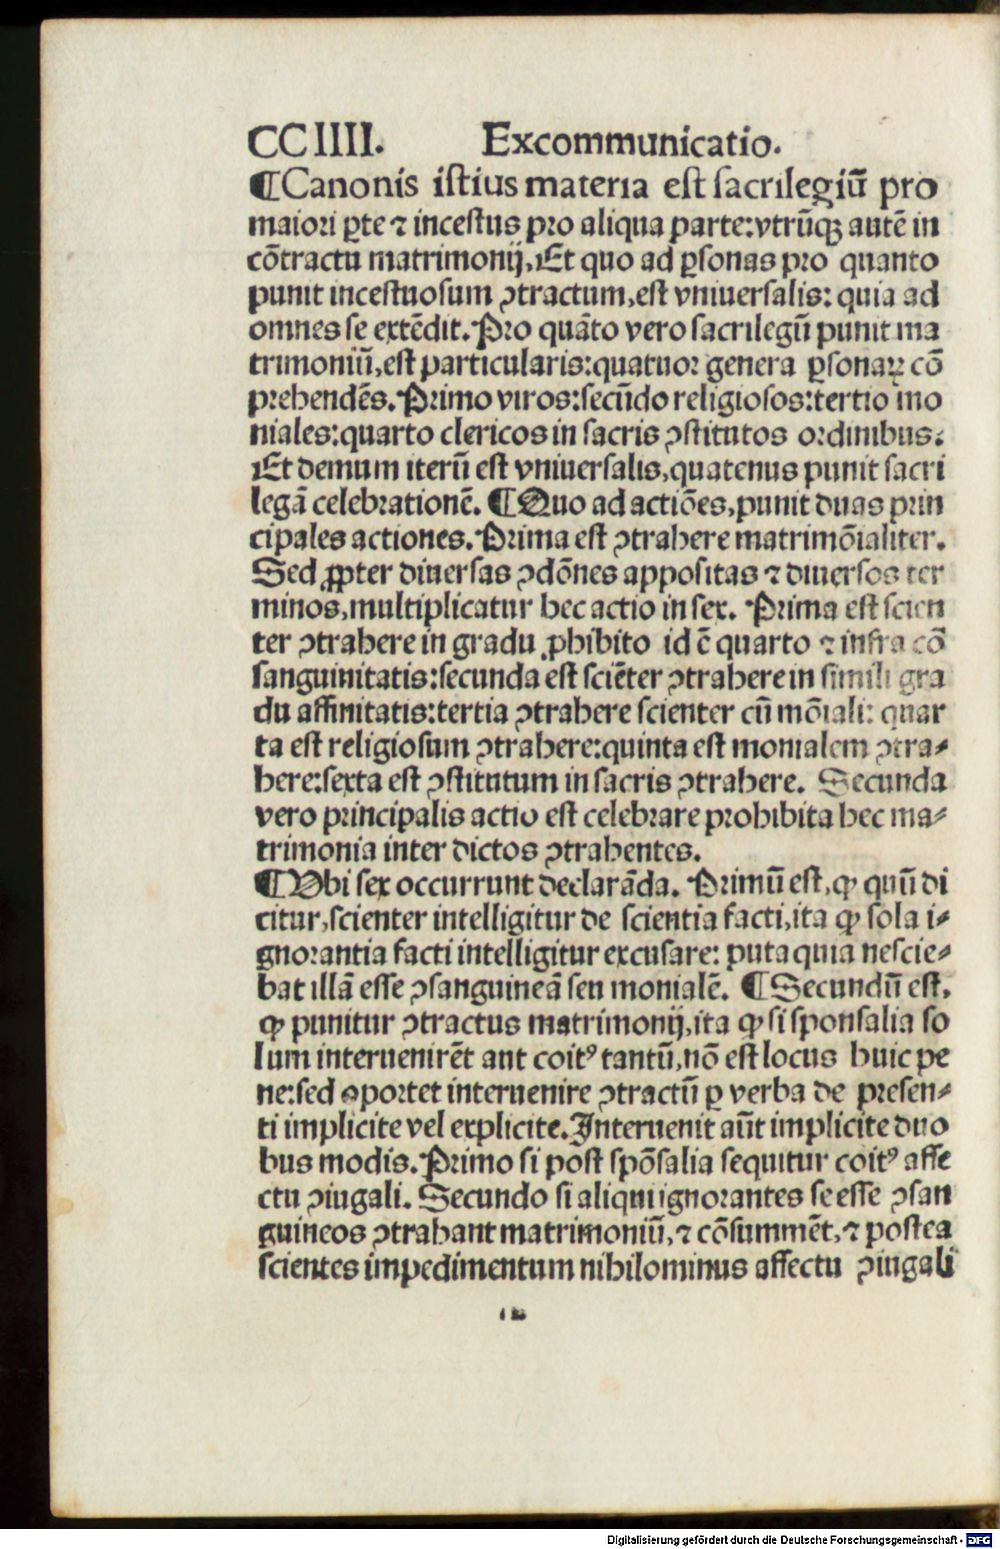 CCIIII. Excommunicatio.
¶Canonis istius materia est sacrilegiū pro
maiori ꝑte ⁊ incestus pro aliqua parte: vtrūqꝫ autē in
cōtractu matrimonij. Et quo ad ꝑsonas pro quanto
punit incestuosum ꝯtractum, est vniuersalis: quia ad
omnes se extēdit. Pro quāto vero sacrilegū punit ma
trimoniū, est particularis: quatuor genera ꝑsonaꝝ cō
prehendēs. Primo viros: secūdo religiosos: tertio mo
niales: quarto clericos in sacris ꝯstitutos ordinibus.
Et demum iterū est vniuersalis, quatenus punit sacri
legā celebrationē. ¶Quo ad actiōes, punit duas prin
cipales actiones. Prima est ꝯtrahere matrimōialiter.
Sed ꝓpter diuersas ꝯdōnes appositas ⁊ diuersos ter
minos, multiplicatur hec actio in sex. Prima est scien
ter ꝯtrahere in gradu ꝓhibito id ē quarto ⁊ infra cō
sanguinitatis: secunda est sciēter ꝯtrahere in simili gra
du affinitatis: tertia ꝯtrahere scienter cū mōiali: quar
ta est religiosum ꝯtrahere: quinta est monialem ꝯtra⸗
here: sexta est ꝯstitutum in sacris ꝯtrahere. Secunda
vero principalis actio est celebrare prohibita hec ma⸗
trimonia inter dictos ꝯtrahentes.
¶Vbi sex occurrunt declarāda. Primū est, ꝙ quū di
citur, scienter intelligitur de scientia facti, ita ꝙ sola i⸗
gnorantia facti intelligitur excusare: puta quia nescie⸗
bat illā esse ꝯsanguineā seu monialē. ¶Secundū est,
ꝙ punitur ꝯtractus matrimonij, ita ꝙ si sponsalia so
lum interuenirēt aut coitꝰ tantū, nō est locus huic pe
ne: sed oportet interuenire ꝯtractū ꝑ verba de presen⸗
ti implicite vel explicite. Interuenit aūt implicite duo
bus modis. Primo si post spōsalia sequitur coitꝰ affe
ctu ꝯiugali. Secundo si aliqui ignorantes se esse ꝯsan
guineos ꝯtrahant matrimoniū, ⁊ cōsummēt, ⁊ postea
scientes impedimentum nihilominus affectu ꝯiugali
Digitalisierung gefördert durch die Deutsche Forschungsgemeinschaft - DFG